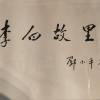 李白故里
邓小平